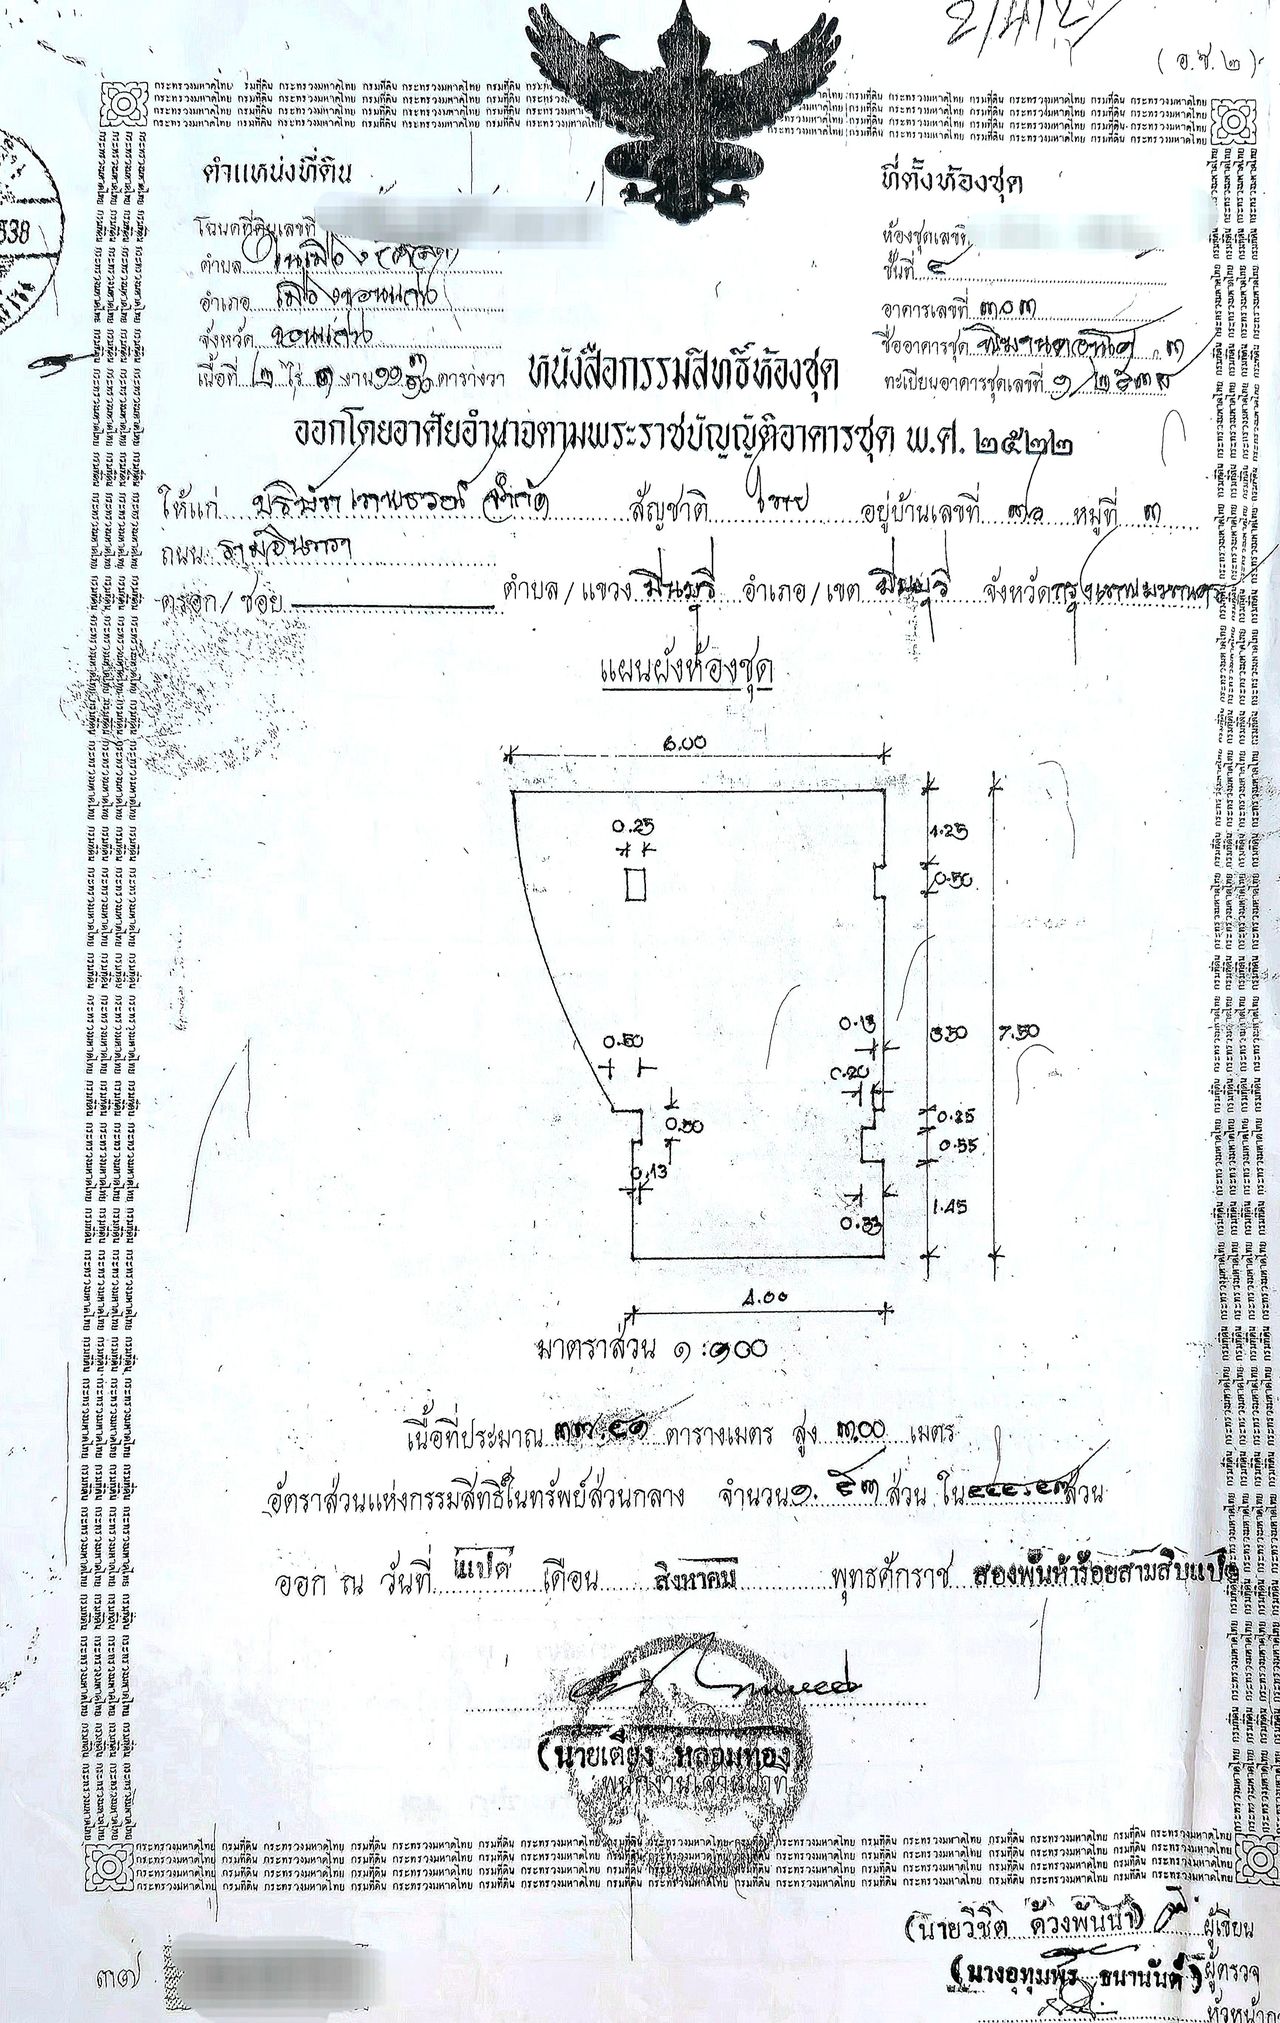 (อ.ช.๒)
ตำแหน่งที่ดิน
ที่ตั้งห้องชุด
โฉนดที่ดินเลขที่
ห้องชุดเลขที่
ตำบล ในเมือง
ชั้นที่ ๔
อำเภอ เมืองขอนแก่น
อาคารเลขที่ ๓๐๓
จังหวัด ขอนแก่น
ชื่ออาคารชุด ๓
เนื้อที่ ๒ ไร่ ๓ งาน ตารางวา
ทะเบียนอาคารชุดเลขที่ ๑/๒๕๓๘
หนังสือกรรมสิทธิ์ห้องชุด
ออกโดยอาศัยอำนาจตามพระราชบัญญัติอาคารชุด พ.ศ. ๒๕๒๒
ให้แก่ บริษัท จำกัด สัญชาติ ไทย อยู่บ้านเลขที่ หมู่ที่ ๓
ถนน รามอินทรา
ตรอก/ซอย ตำบล/แขวง มีนบุรี อำเภอ/เขต มีนบุรี จังหวัด กรุงเทพมหานคร
แผนผังห้องชุด
6.00
0.25
1.25
0.50
0.13
0.50
3.50
7.50
0.20
0.50
0.25
0.55
0.13
1.45
0.33
4.00
มาตราส่วน ๑:๑๐๐
เนื้อที่ประมาณ ๓๗.๔๑ ตารางเมตร สูง ๓.๐๐ เมตร
อัตราส่วนแห่งกรรมสิทธิ์ในทรัพย์ส่วนกลาง จำนวน ๑.๕๓ ส่วน ใน ส่วน
ออก ณ วันที่ แปด เดือน สิงหาคม พุทธศักราช สองพันห้าร้อยสามสิบแปด
(นายเตียง หลอมทอง)
พนักงานเจ้าหน้าที่
(นายวิชิต ด้วงพันนา) ผู้เขียน
(นางอุทุมพร ธนานันต์) ผู้ตรวจ
๓๗